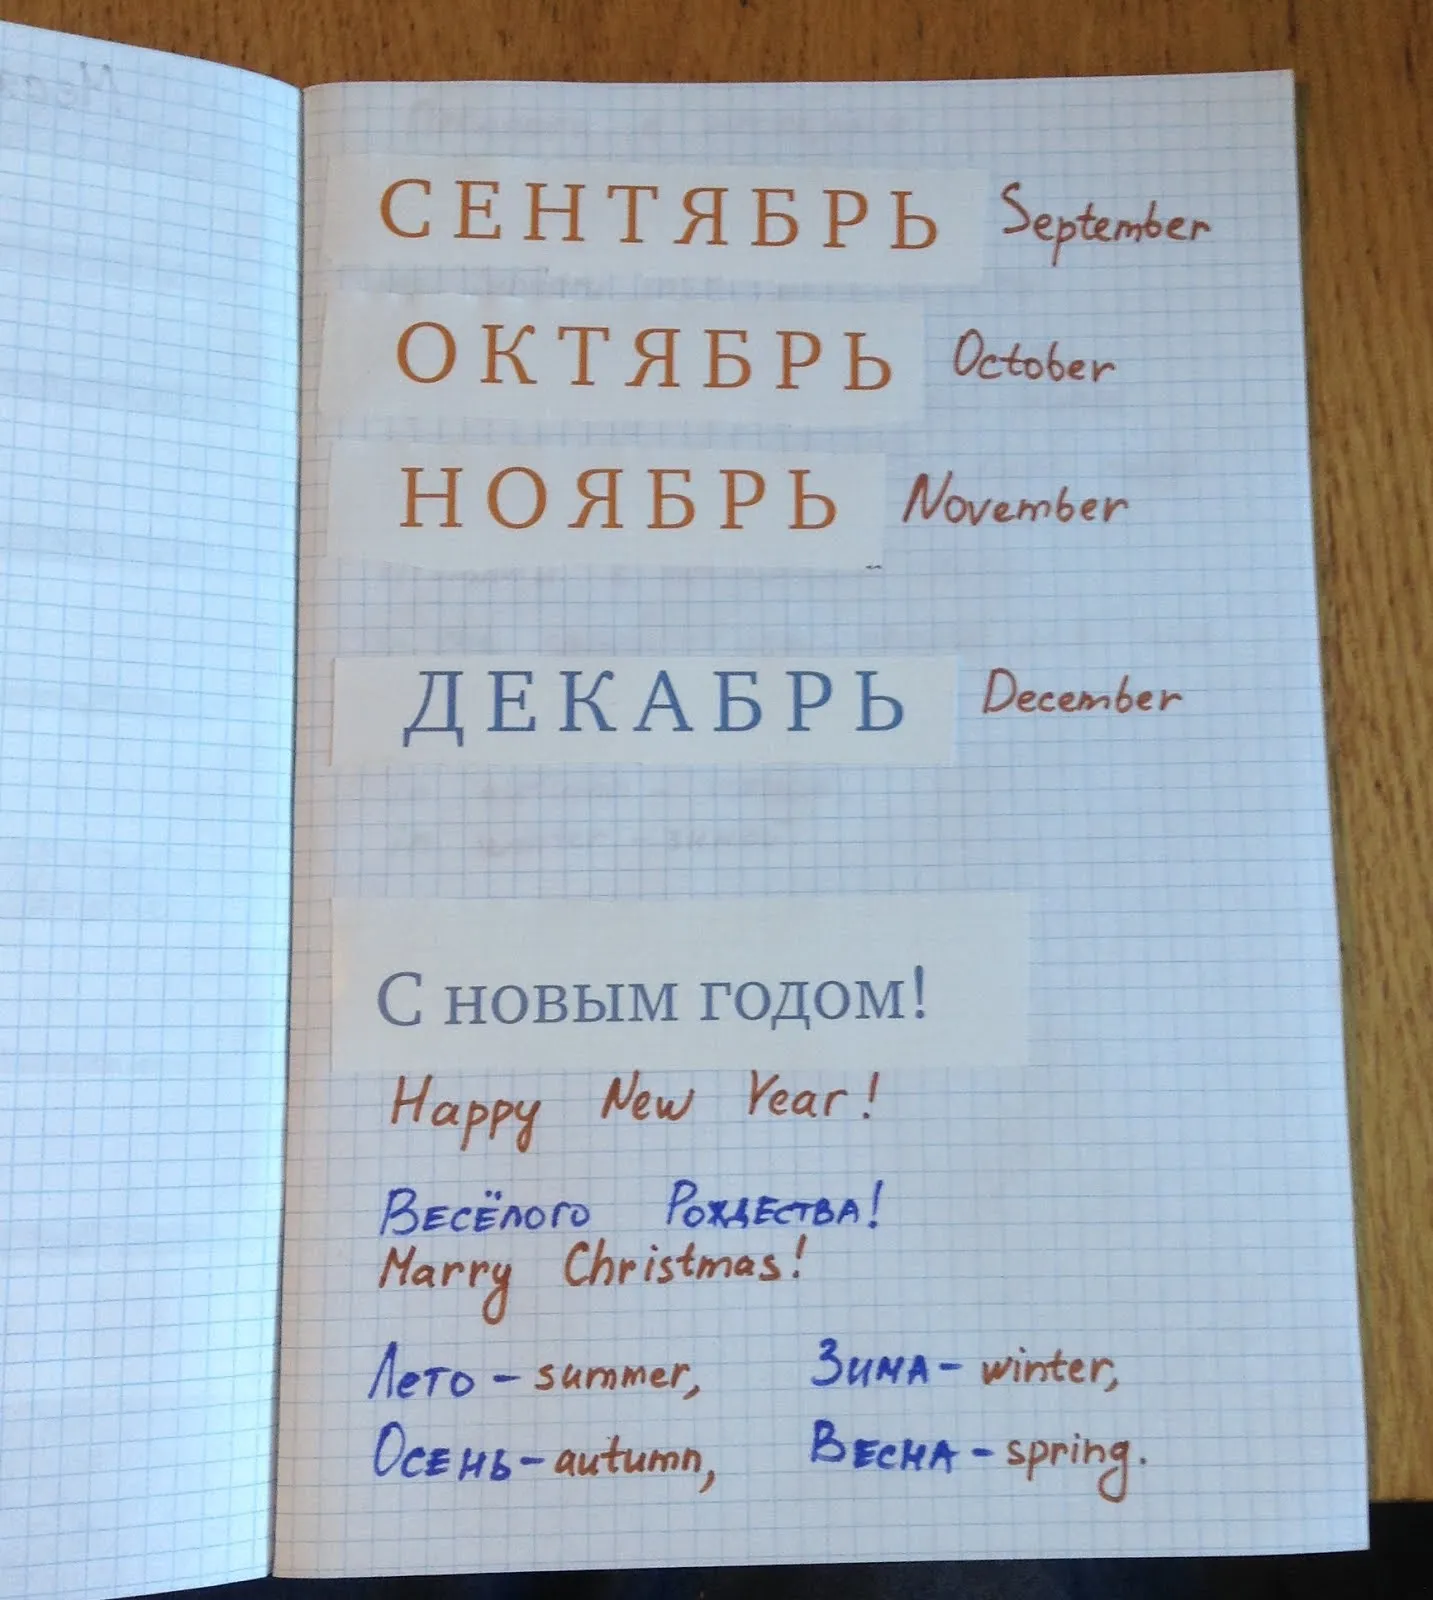 СЕНТЯБРЬ September
ОКТЯБРЬ October
НОЯБРЬ November
ДЕКАБРЬ December
С новым годом!
Happy New Year!
ВЕСЁЛОГО РОЖДЕСТВА!
Marry Christmas!
ЛЕТО - summer, ЗИМА - winter,
ОСЕНЬ - autumn, ВЕСНА - spring.